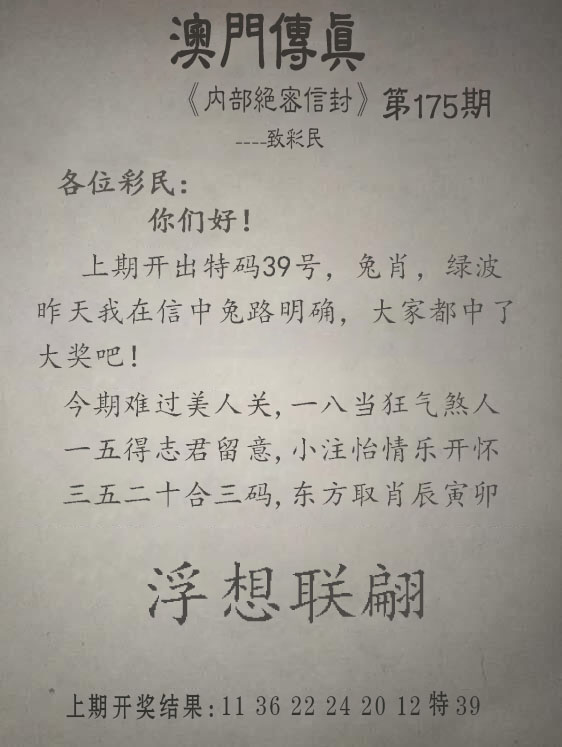 澳門傳眞
《內部絕密信封》第175期
----致彩民
各位彩民：
你们好！
上期开出特码39号，兔肖，绿波
昨天我在信中兔路明确，大家都中了
大奖吧！
今期难过美人关,一八当狂气煞人
一五得志君留意,小注怡情乐开怀
三五二十合三码,东方取肖辰寅卯
浮想联翩
上期开奖结果:11 36 22 24 20 12 特 39